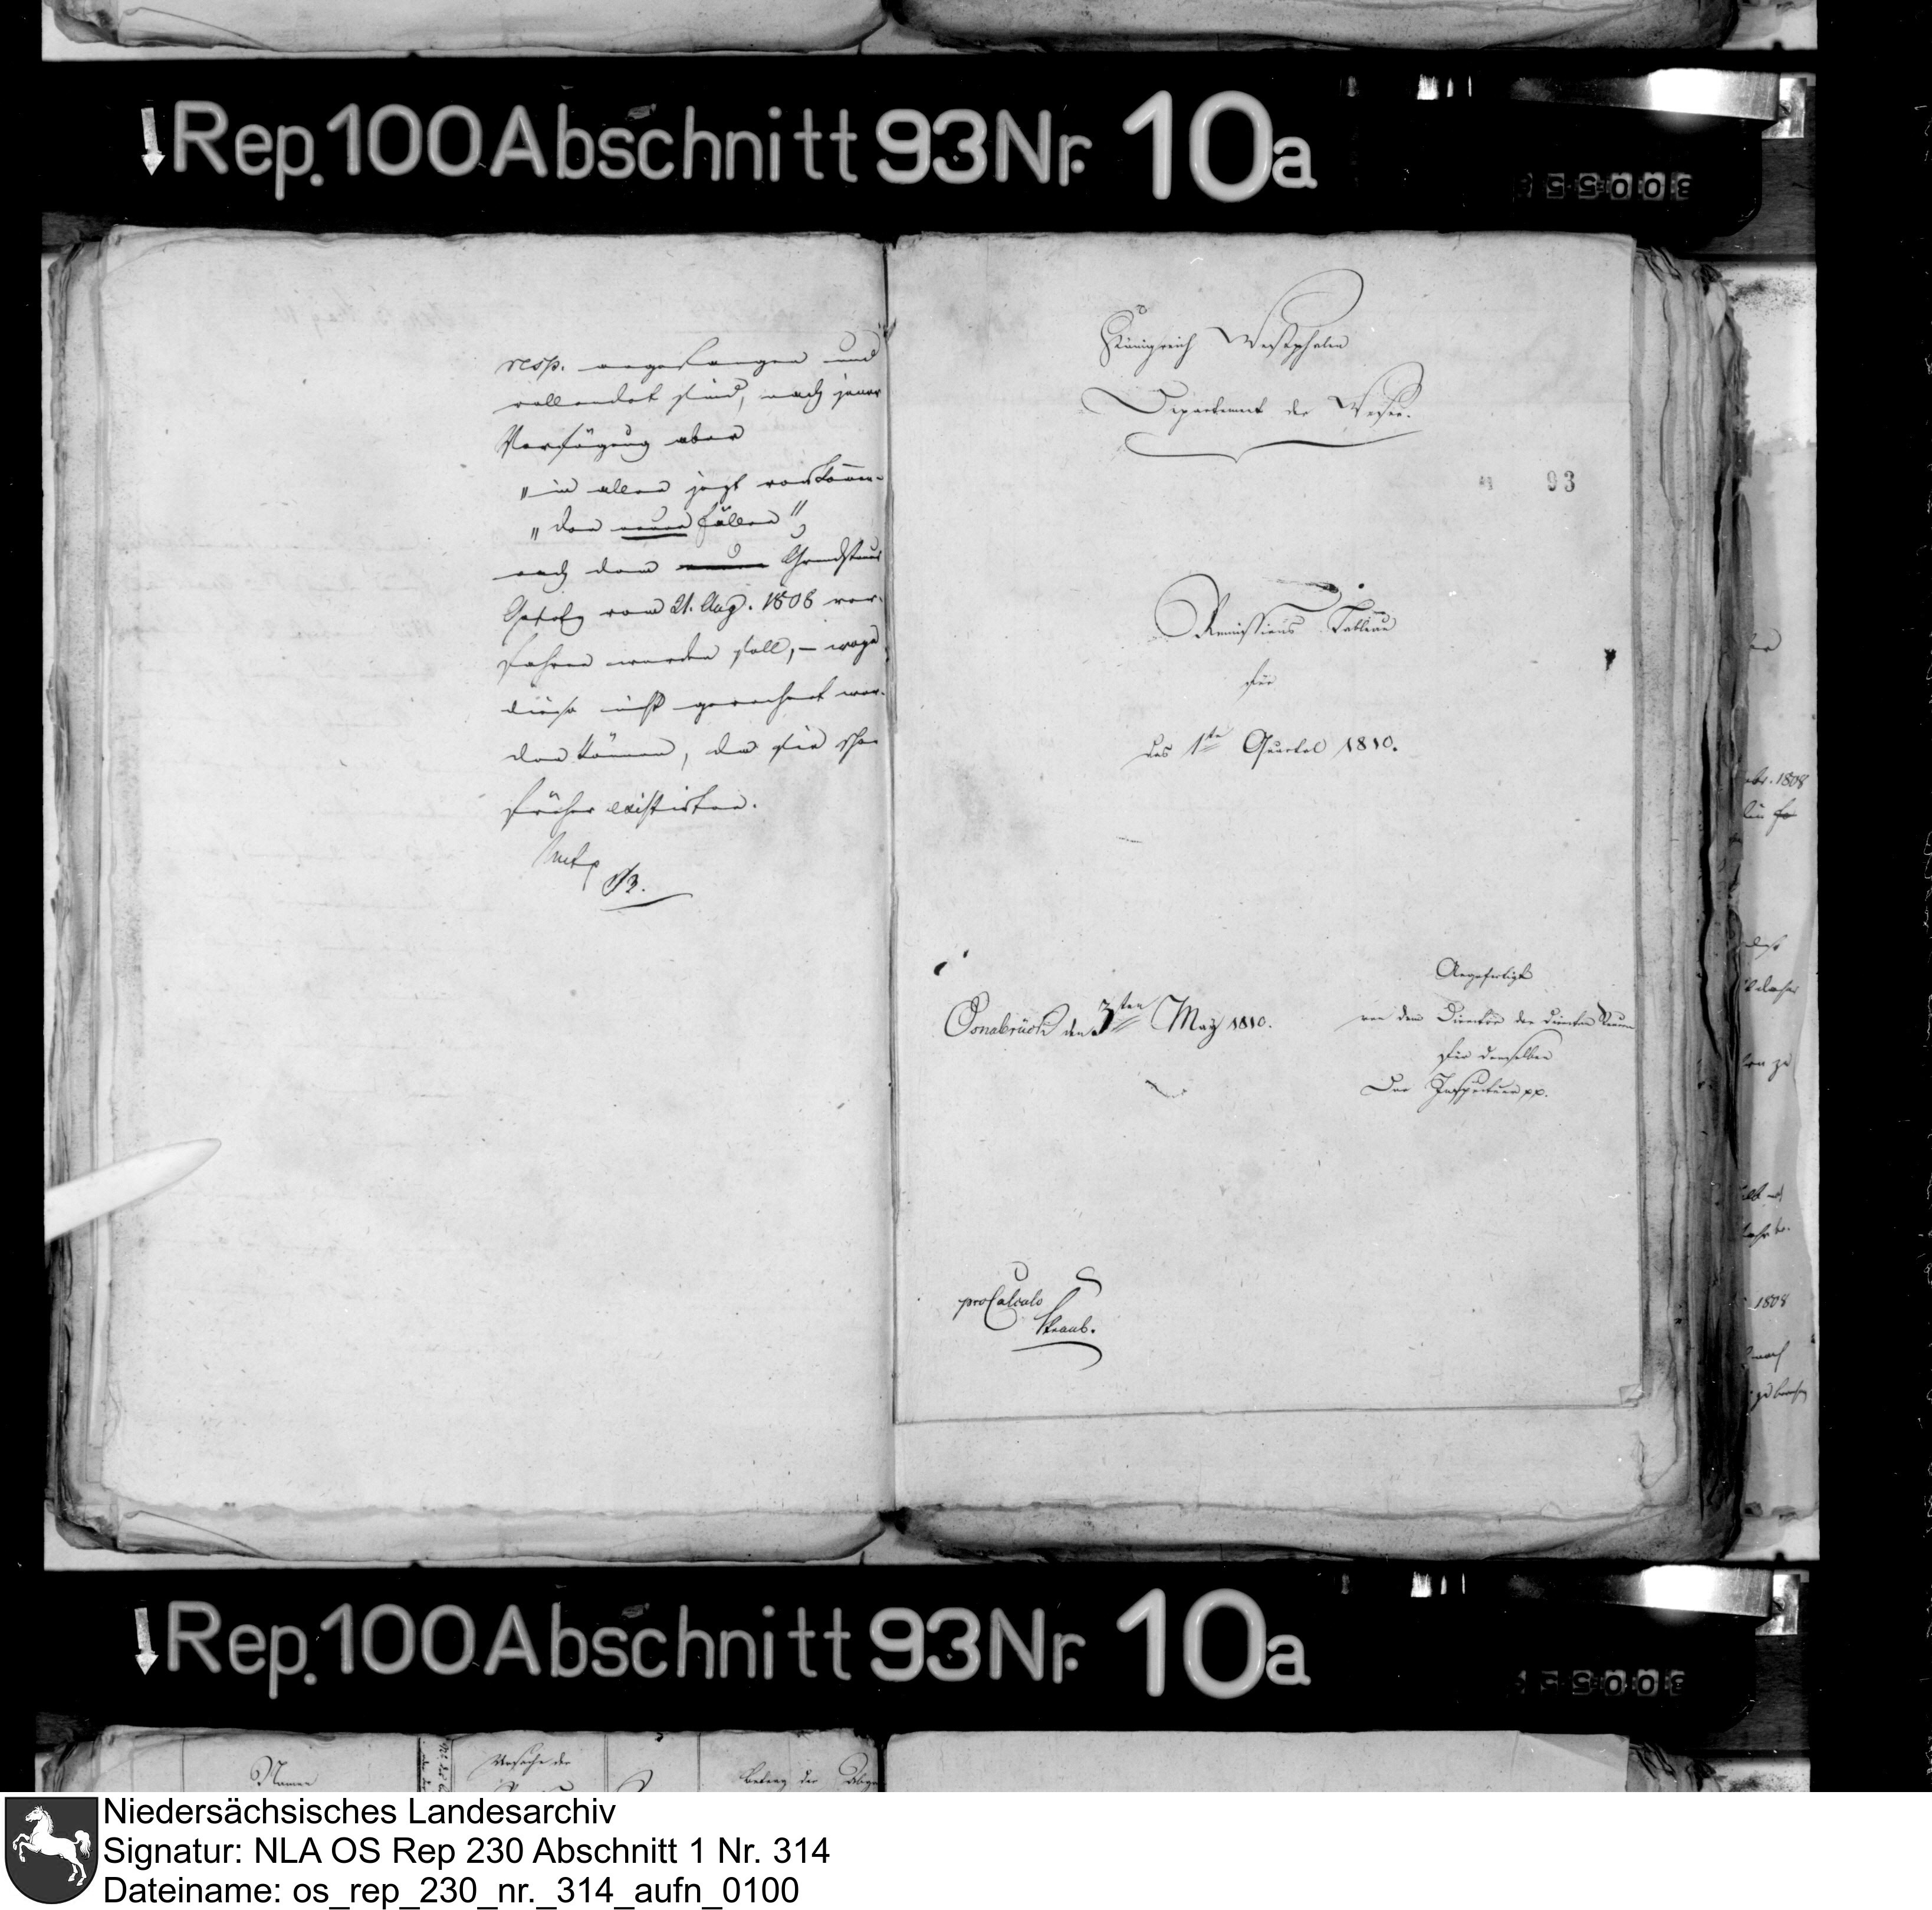 Rep. 100 Abschnitt 93 Nr. 10a
resp. angefangen und
vollendet sind, nach jener
Verfügung aber
"in allen jetzt vorkom̄en-
"den neuen Fällen"
nach dem Grundsteuer
Gesetz vom 21. Aug. 1808 ver-
fahren werden soll, – wozu
diese nicht gerechnet wer-
den können, da sie schon
früher existirten.
Königreich Westphalen
Departement der Weser.
93
Remissions Tableau
für
das 1te Quartal 1810.
Angefertigt
Osnabrück den 3ten May 1810.
von dem Director der directen Steuern
für denselben
Der Inspecteur pp.
pro Calculo
Straub.
Rep. 100 Abschnitt 93 Nr. 10a
Namen
Ursache der
Betrag der
Niedersächsisches Landesarchiv
Signatur: NLA OS Rep 230 Abschnitt 1 Nr. 314
Dateiname: os_rep_230_nr._314_aufn_0100